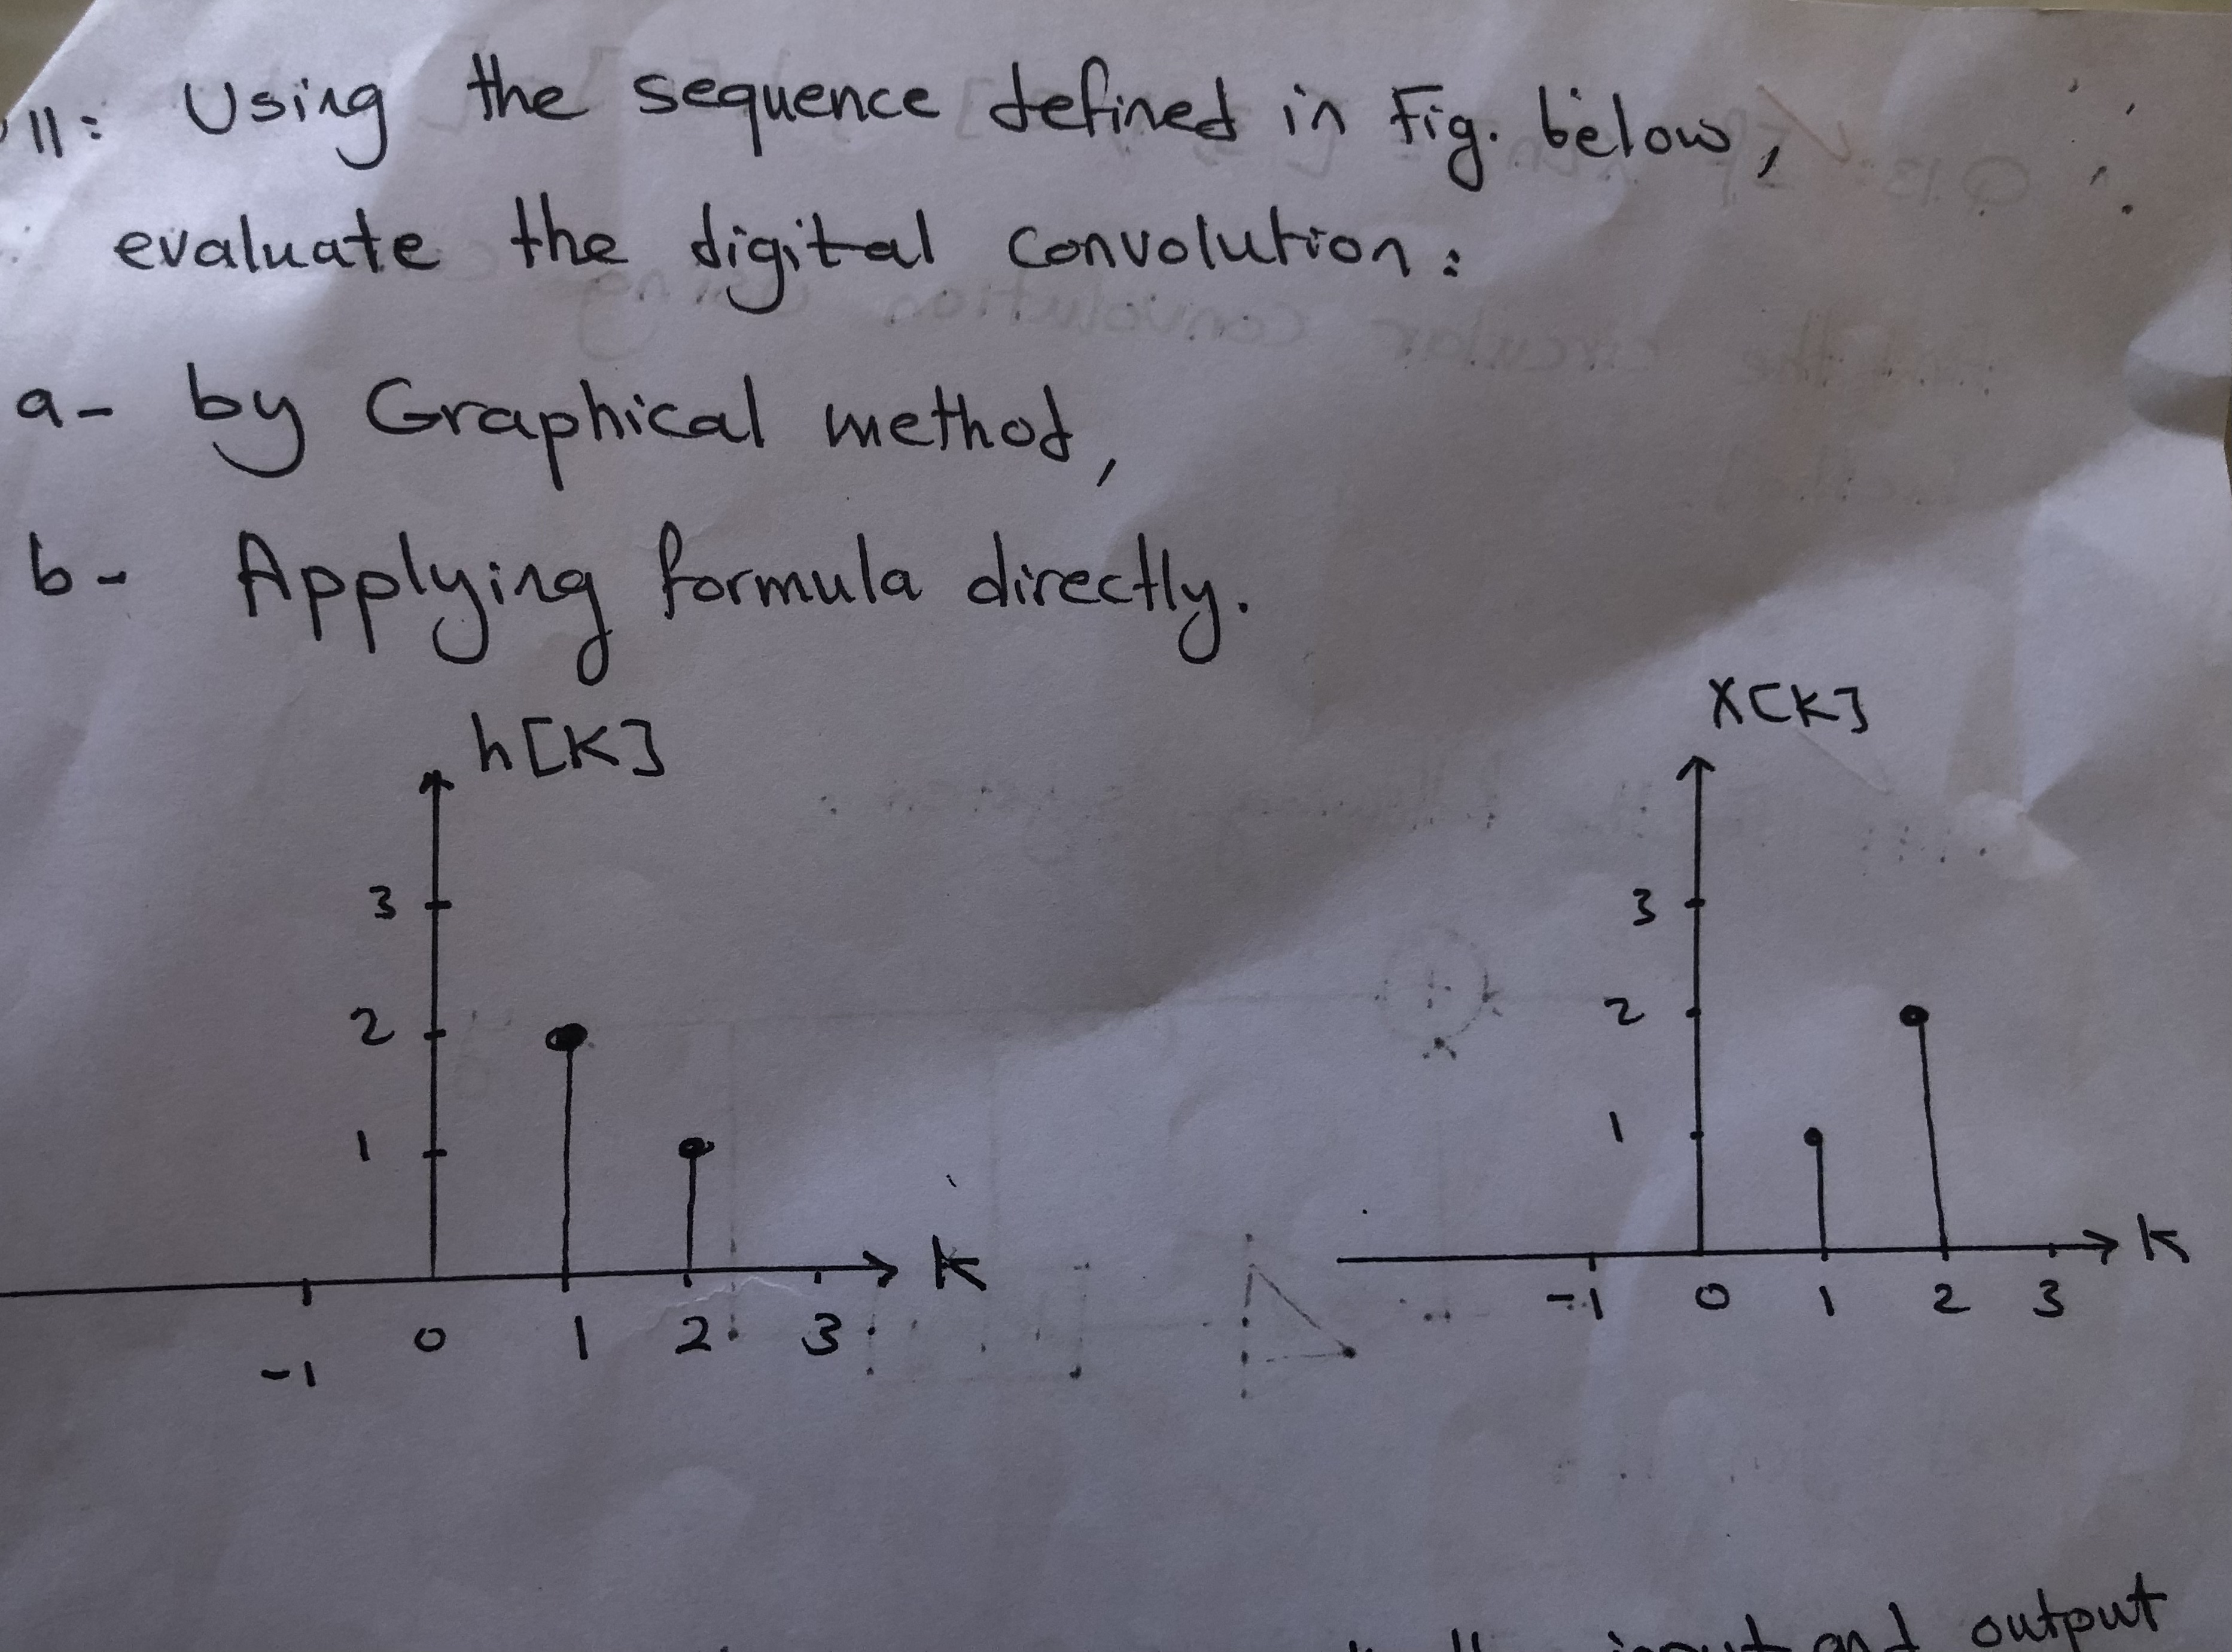 11: Using the sequence defined in Fig. below,
evaluate the digital convolution:
a- by Graphical method,
b- Applying formula directly.
h[K]
3
2
1
K
-1
0
1
2
3
X[K]
3
2
1
K
-1
0
1
2
3
input and output